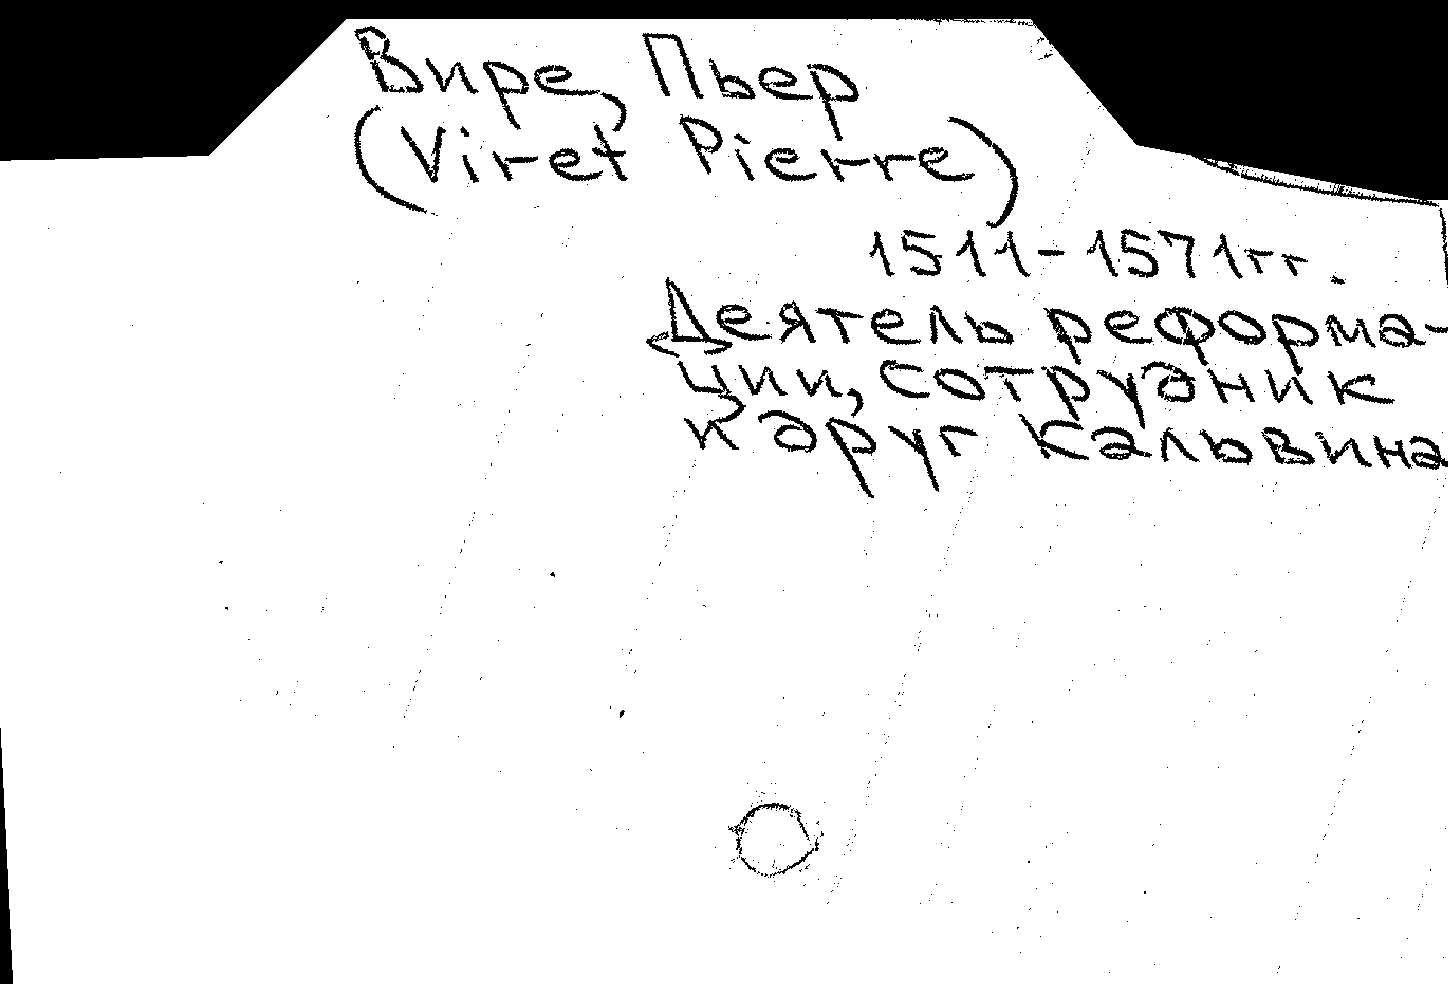 Вире, Пьер
(Viret Pierre)
1511-1571гг.
Деятель реформа-
ции, сотрудник
и друг Кальвина